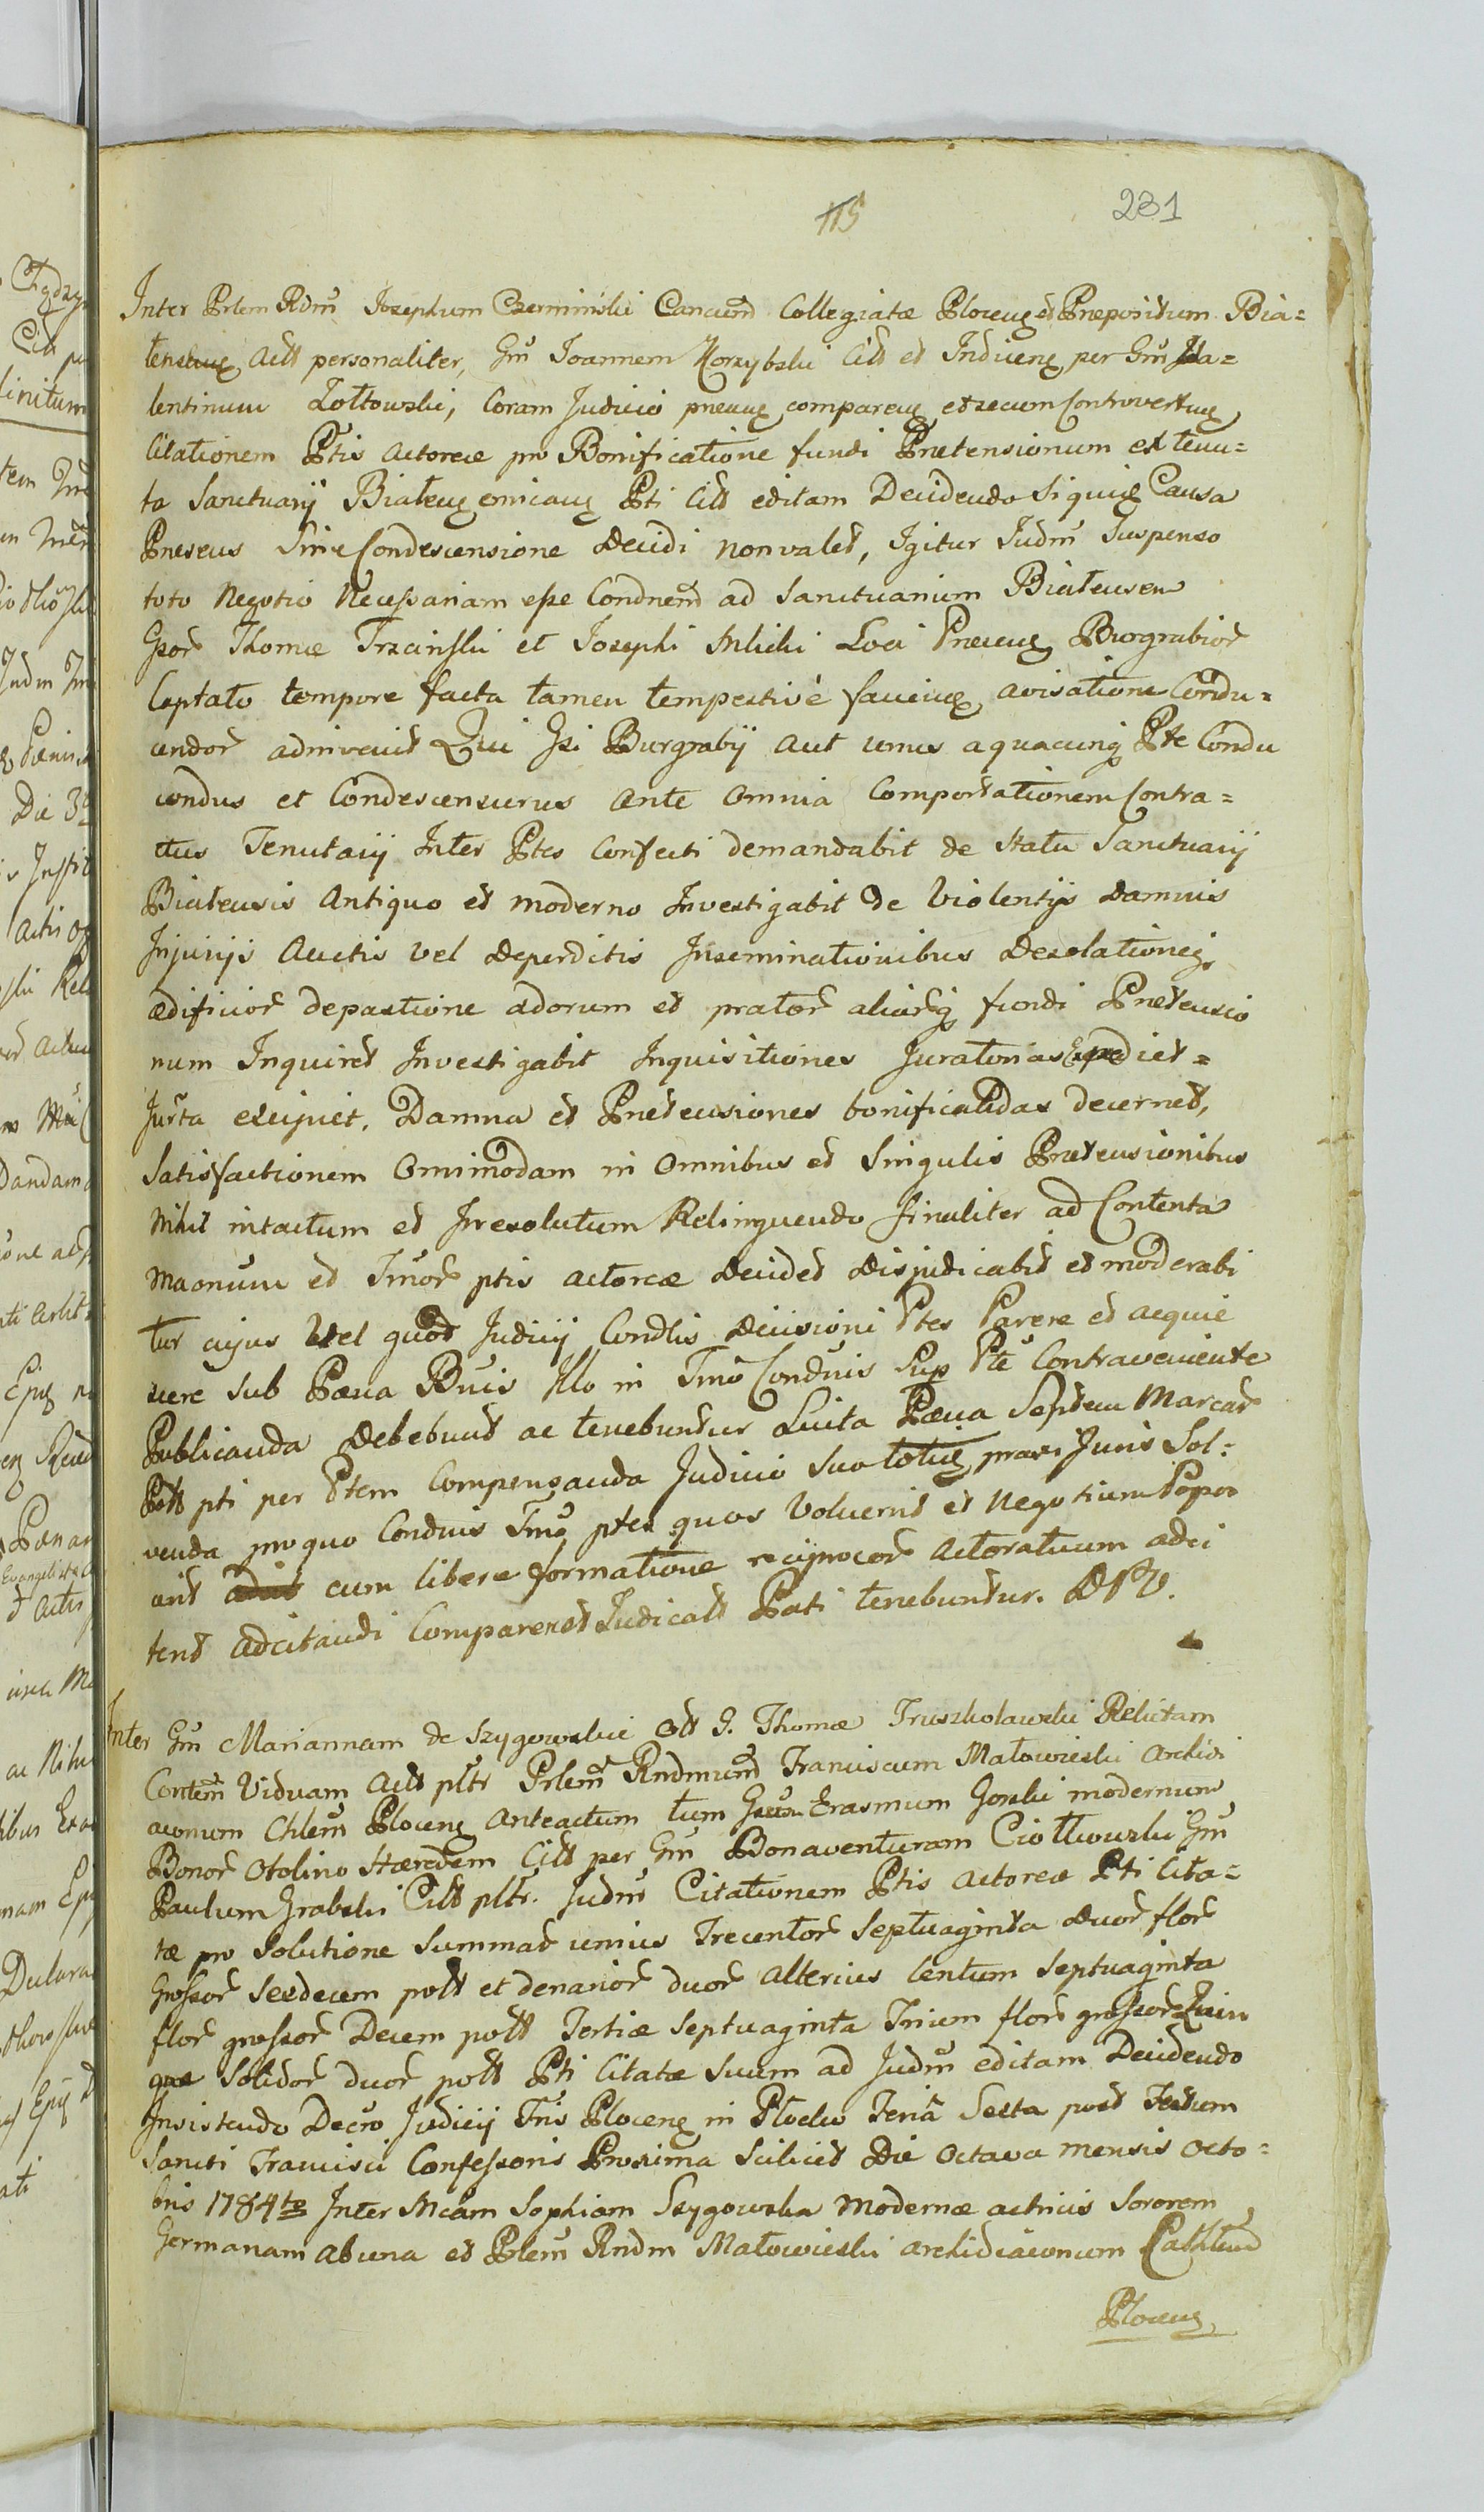 115 231
Inter Prlem Rdm Josephum Czerminski Cancum Collegiatæ Plocens et Præpositum Bia=
tensem Actt personaliter, Gm Joannem Korzybski Citt et Inducens per Gm Va=
lentinum Zołtowski, Coram Judicio præns comparens et secum Controvertens
Citationem Ptis Actoreæ pro Bonificatione fundi Prætensionum ex tenu=
ta Sanctuarij Białens emicans Pti Citt editam Decidendo Siquid Causa
Præsens Sine Condescensione Decidi non valet, Igitur Judm Suspenso
toto Negotio Necessariam esse Condnem ad Sanctuarium Białensem
Gsor Thomæ Trzcinski et Josephi Milicki Loci Præns Burgrabior
Captato tempore facta tamen tempestivè avisatione Condu=
cendor adinvenit Qui Gsi Burgrabij aut unus a quacunq Pte Condu
cendus et Condescensurus ante Omnia Comportationem Contra=
ctus Tenutarij Inter Ptes Confecti demandabit de Statu Sanctuarij
Białensis Antiquo et moderno Investigabit De Violentijs Damnis
Injurijs Auctis vel Deperditis Inseminationibus Desolationeq
ædificior depastione adorum et prator aliarq fundi Prætensio
num Inquiret Investigabit Inquisitiones Juratorias Expediet=
Jurta exequiet. Damna et Prætensiones bonificandas decernet,
Satisfactionem Omnimodam in Omnibus et Singulis Prætensionibus
Nihil intactum et Irresolutum Relinquendo finaliter ad Contenta
et Tmor ptis actoreæ Decidet Disjudicabit et moderabi
tur cujus Vel quod Judicij Condlis Decisioni Ptes Parere et acquie
scere sub Pæna Bnis Illo in Tmo Condnis Sup Pte Contraveniente
Publicanda Debebunt ac tenebuntur Luita Pæna Septem Marcar
Pott pti per Ptem Compensanda Judicio Suo toties praxi Juris Sol=
venda pro quo Condnis Tmo ptes quos Voluerit et Negotium Popos
cerit cum libere formatione reciprocor Actoratuum adci
tent adcitandi Comparent Judicatt Pati tenebuntur. DPV.
Inter Gm Mariannam de Szygowskie Ott G. Thomæ Truszkolawski Relictam
Contem Viduam Actt pltr Prlem Rndmum Franciscum Matowieski Archidi
aconum Cthlem Plocens Anteactum tum Gsum Erasmum Gorski modernum
Bonor Otolino Hæredem Citt per Gm Bonaventuram Ciołkowski Gm
Paulum Grabski Citt pltr. Judm Citationem Ptis Actoreæ Pti Cita=
tæ pro Solutione Summar unius Trecentor Septuaginta Duor flor
Grossor Sexdecem poltt et denarior duor Alterius Centum Septuaginta
flor grossor Decem poltt Tertiæ Septuaginta Trium flor grossor Quin
que Solidor duor poltt Pti Citatæ Suum ad Judm editam Decidendo
Insistendo Decro Judicij Tris Plocens in Płocko Feriâ Sexta post Festum
Sancti Francisci Confessoris Proxima Scilicet Die Octava mensis Octo=
bris 1784to Inter Sophiam Szygowska Modernæ actricis Sororem
Germanam ab una et Prlem Rndm Matowieski archidiaconum Cathlem
Plocens